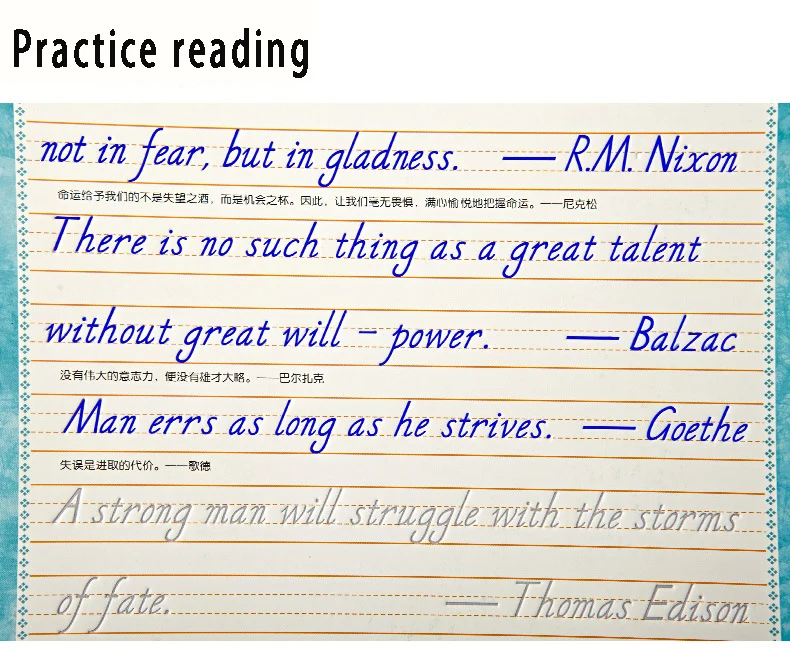 Practice reading
not in fear, but in gladness. — R.M. Nixon
命运给予我们的不是失望之酒，而是机会之杯。因此，让我们毫无畏惧，满心愉悦地把握命运。——尼克松
There is no such thing as a great talent
without great will - power. — Balzac
没有伟大的意志力，便没有雄才大略。——巴尔扎克
Man errs as long as he strives. — Goethe
失误是进取的代价。——歌德
A strong man will struggle with the storms
of fate. — Thomas Edison